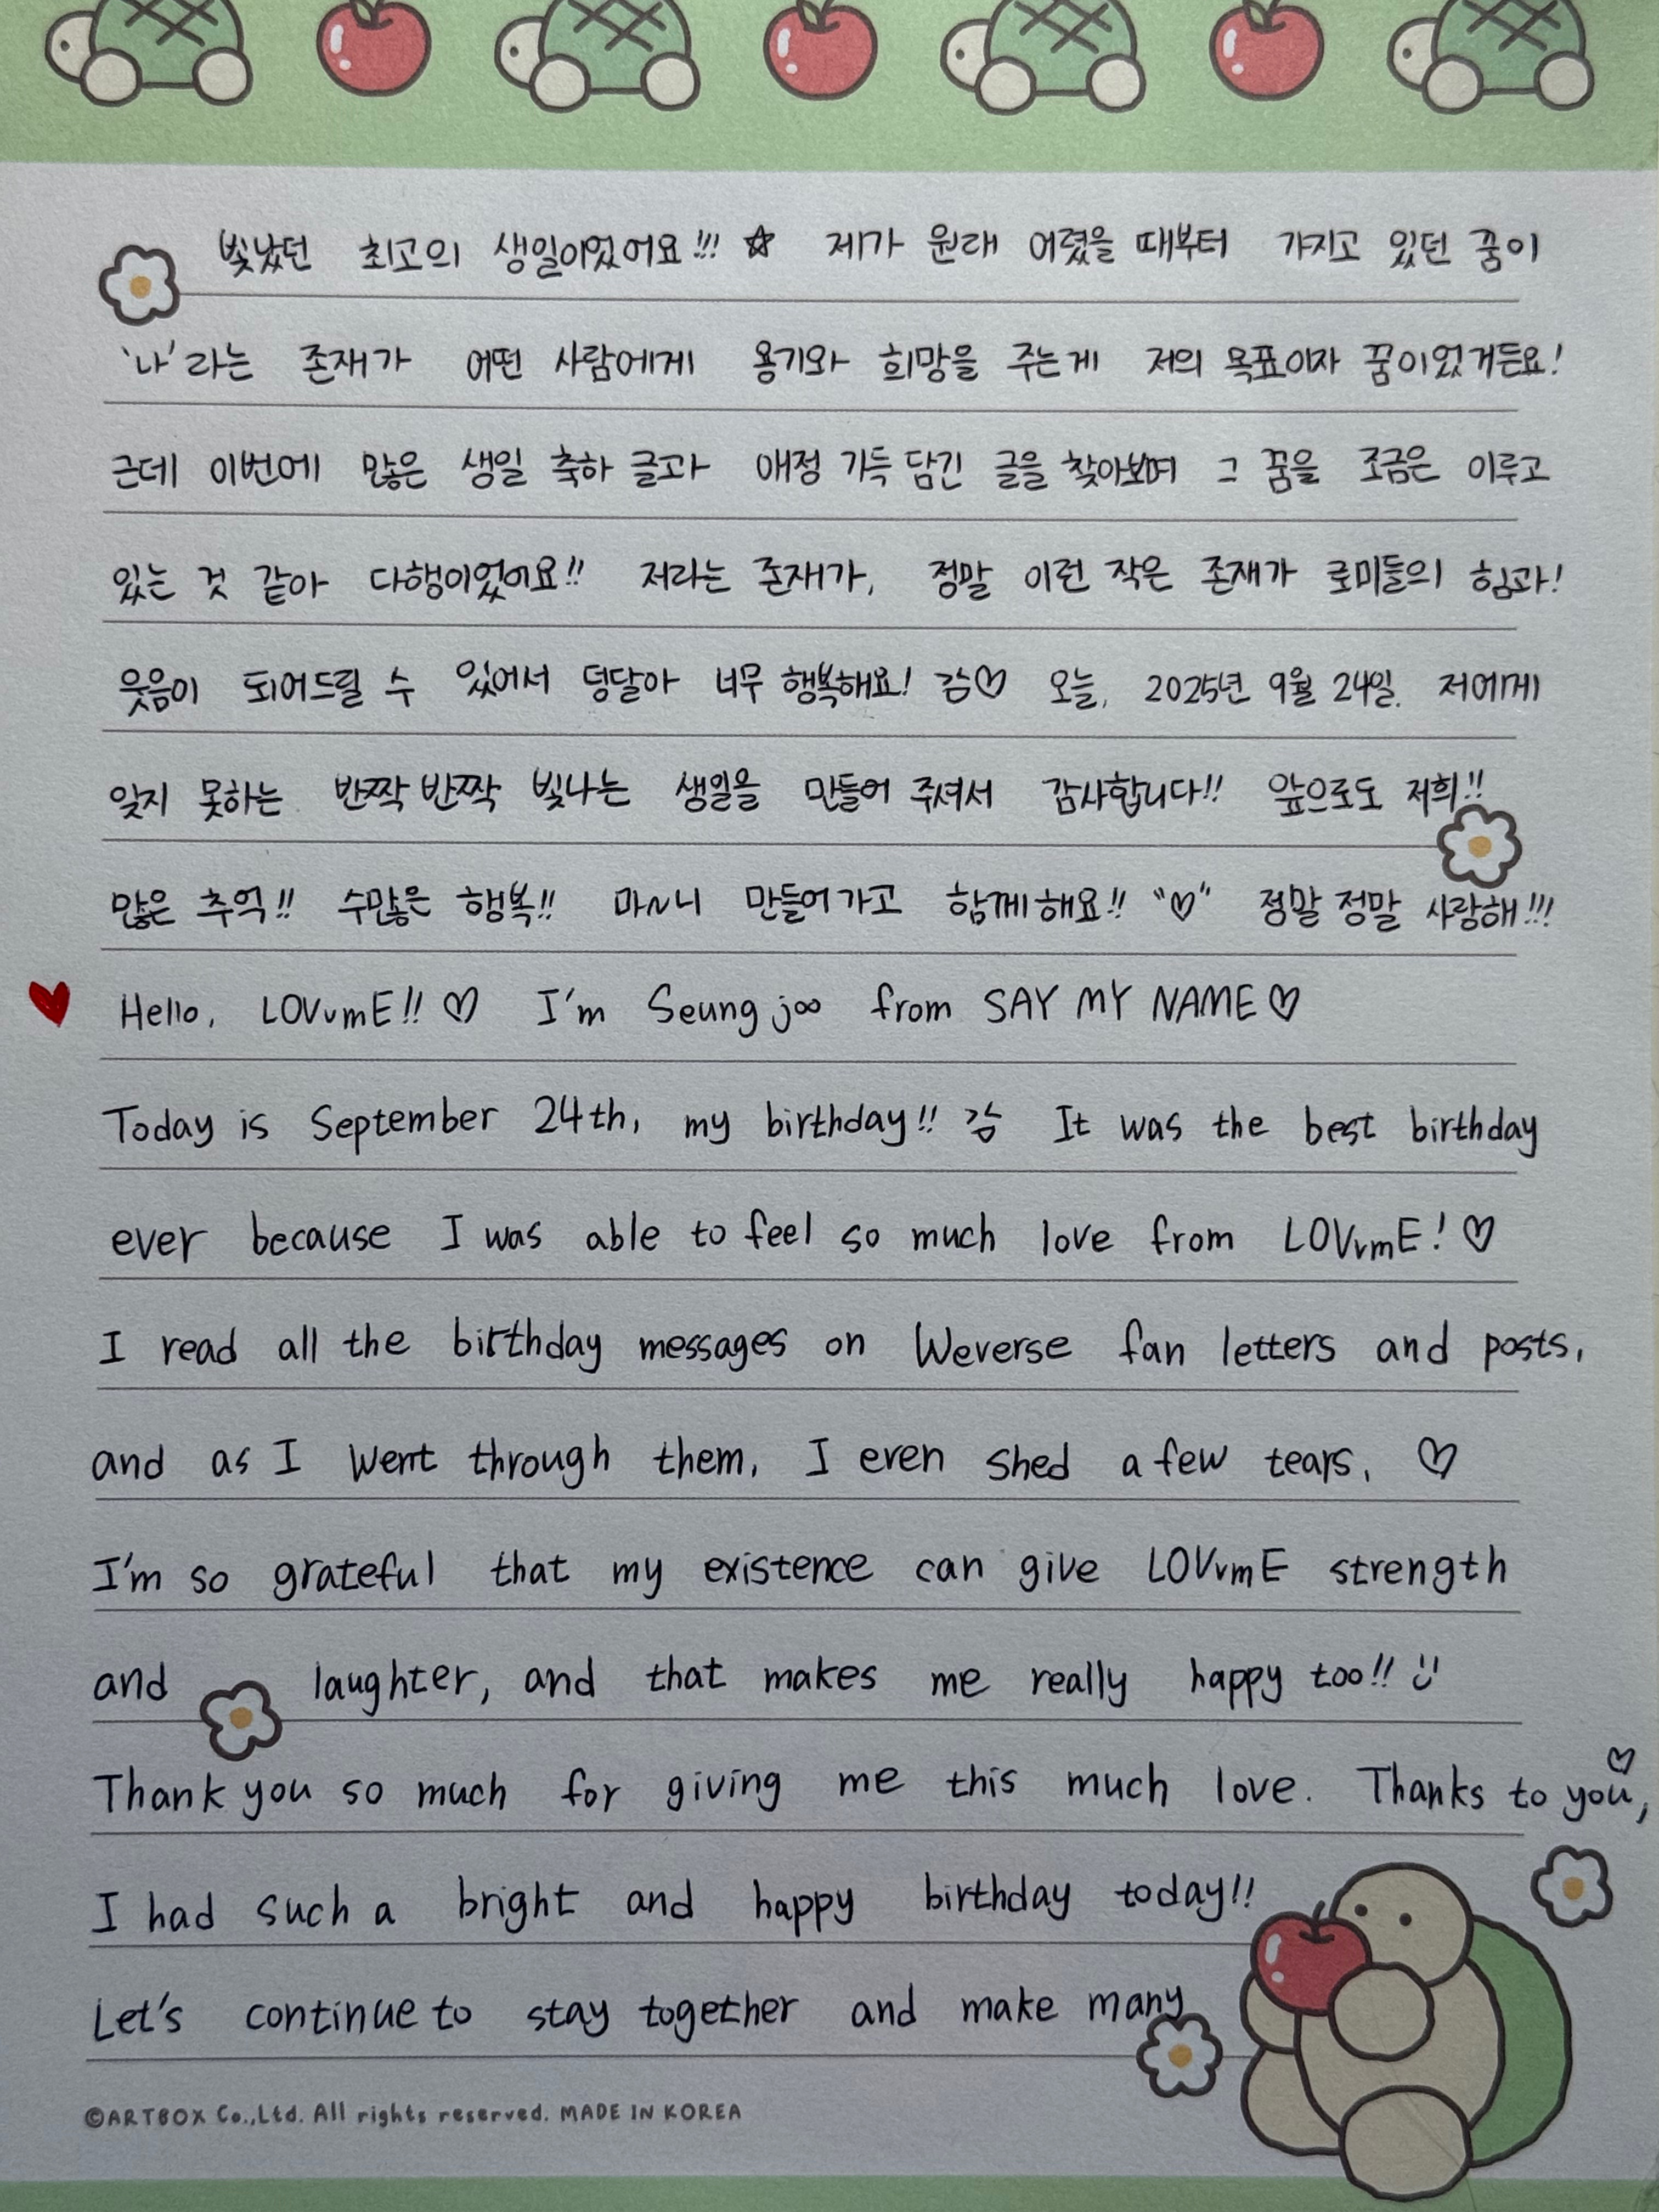 빛났던 최고의 생일이었어요!!! ☆ 제가 원래 어렸을 때부터 가지고 있던 꿈이
'나'라는 존재가 어떤 사람에게 용기와 희망을 주는게 저의 목표이자 꿈이었거든요!
근데 이번에 많은 생일 축하 글과 애정 가득 담긴 글을 찾아보며 그 꿈을 조금은 이루고
있는 것 같아 다행이었어요!! 저라는 존재가, 정말 이런 작은 존재가 로미들의 힘과!
웃음이 되어드릴 수 있어서 덩달아 너무 행복해요! 김♡ 오늘, 2025년 9월 24일. 저에게
잊지 못하는 반짝반짝 빛나는 생일을 만들어 주셔서 감사합니다!! 앞으로도 저희!!
많은 추억!! 수많은 행복!! 마~니 만들어가고 함께해요!! "♡" 정말 정말 사랑해!!!
Hello, LOVvmE!! ♡ I'm Seungjoo from SAY MY NAME♡
Today is September 24th, my birthday!! It was the best birthday
ever because I was able to feel so much love from LOVvmE! ♡
I read all the birthday messages on Weverse fan letters and posts,
and as I went through them, I even shed a few tears, ♡
I'm so grateful that my existence can give LOVvmE strength
and laughter, and that makes me really happy too!! :)
Thank you so much for giving me this much love. Thanks to you,♡
I had such a bright and happy birthday today!!
Let's continue to stay together and make many
©ARTBOX Co.,Ltd. All rights reserved. MADE IN KOREA